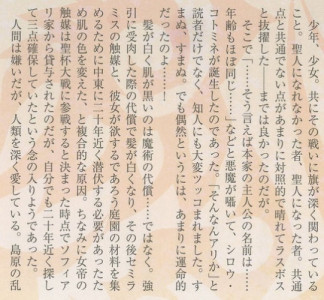 少年、少女。共にその戦いに何らかの縁が深く関わっている
こと。聖人になれなかった者、聖人になった者。共通
点と共通でない点があまりに対照的で晴れてラスボス
と抜擢した――までは良かったのだが。
そこで「……そう言えば本家の主人公の名前は……
年齢もほぼ同じ……」などと悪魔が囁いて、シロウ・
コトミネが誕生したのであった。「そんなんアリか」と
読者だけでなく、知人にも大変ツッコまれました。す
まぬ、すまぬ。でも偶然というには、あまりに運命的
だったのよ……！
髪が白く肌が黒いのは魔術の代償……ではなく、強
引に受肉した際の代償で髪が白くなり、その後セミラ
ミスの触媒と、彼女が欲するであろう庭園の材料を集
めるために中東に二十年近く潜伏する必要があったた
め肌の色を変えた、と複合的な原因。ちなみに女帝の
触媒は聖杯大戦に参戦すると決まった時点でソフィア
リ家から貸与されたのだが、自分でも二十年近く探し
て三点確保していたという念の入りようであった。
人間は嫌いだが、人類を深く愛している。島原の乱